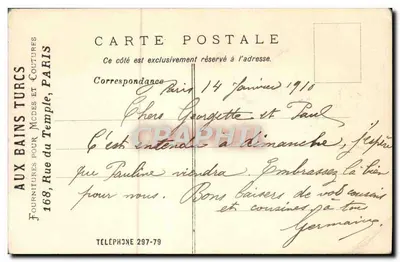 CARTE POSTALE
Ce côté est exclusivement réservé à l'adresse.
Correspondance
AUX BAINS TURCS
FOURNITURES POUR MODES ET COUTURES
168, Rue du Temple, PARIS
Paris 14 Janvier 1910
Chers Georgette et Paul
C'est entendu à dimanche, j'espère
que Pauline viendra. Embrassez la bien
pour nous. Bons baisers de vos cousins
et cousines à tous
Germaine
TÉLÉPHONE 297-79
CPARAMA